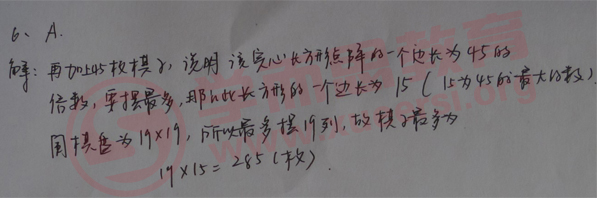 6、A.
解：再加上45枚棋子，说明该实心长方形点阵的一个边长为45的
倍数，要摆最多，那么此长方形的一个边长为15（15为45的最大约数）
围棋盘为19×19，所以最多摆19列，故棋子最多为
19×15=285（枚）.